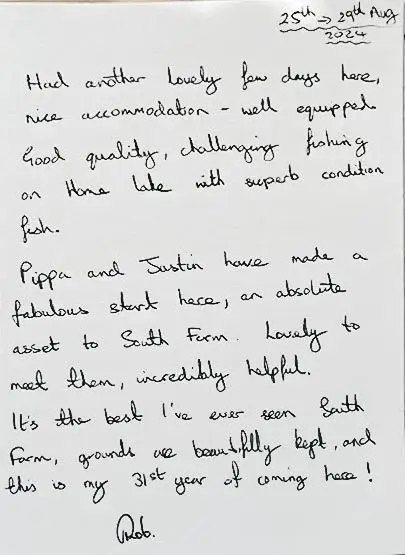 25th → 29th Aug
2024
Had another lovely few days here,
nice accommodation - well equipped.
Good quality, challenging fishing
on Home Lake with superb condition
fish.
Pippa and Justin have made a
fabulous start here, an absolute
asset to South Farm. Lovely to
meet them, incredibly helpful.
It's the best I've ever seen South
Farm, grounds are beautifully kept, and
this is my 31st year of coming here!
Rob.